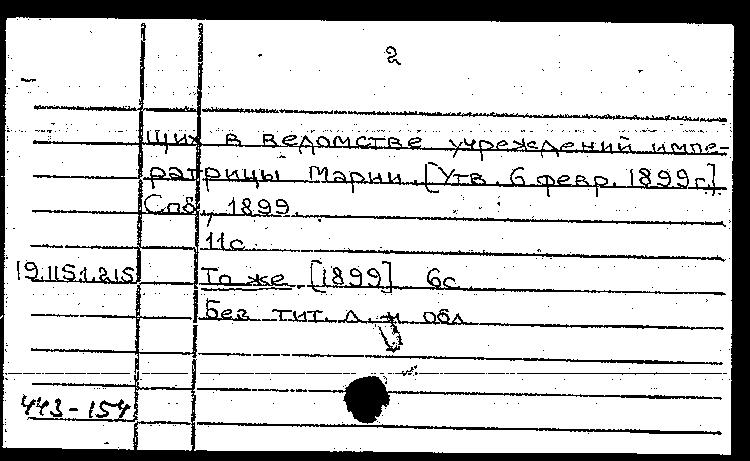 2
щих в ведомстве учреждений импе-
ратрицы Марии. [Утв. 6 февр. 1899 г.]
Спб., 1899.
11с.
19.115.1.215 То же [1899] 6с
Без тит. л. и обл
443-154